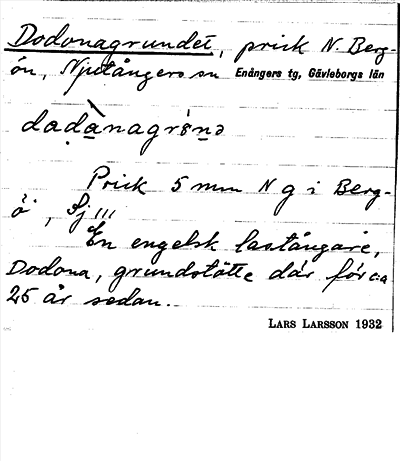 Dodonagrundet, prick N. Berg-
ön, Njutångers sn Enångers tg, Gävleborgs län
dadànagrś̀nə
Prick 5 mm N g i Berg-
ö, Sj !!!
En engelsk lastångare,
Dodona, grundstötte där för c:a
25 år sedan.
LARS LARSSON 1932